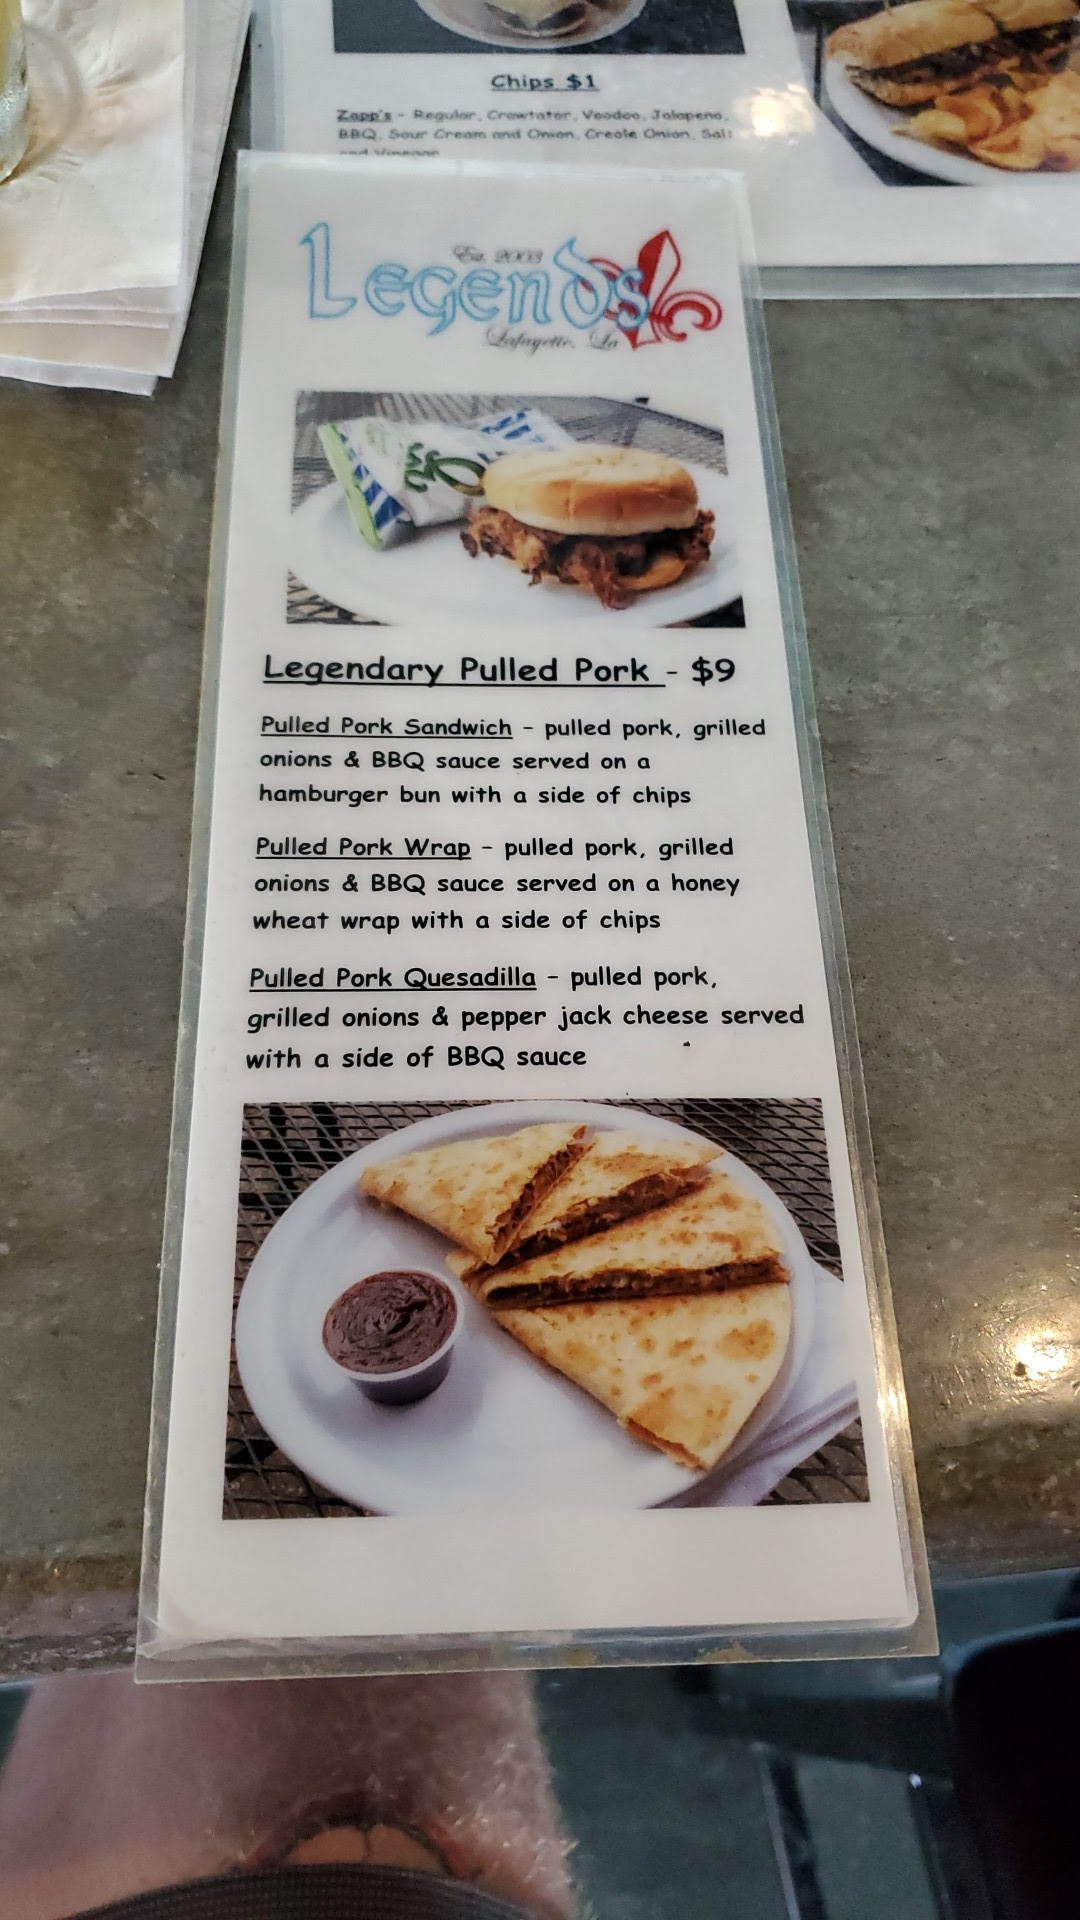 Chips $1
Zapp's - Regular, Crawtator, Voodoo, Jalapeno,
BBQ, Sour Cream and Onion, Creole Onion, Salt
and Vinegar
Est. 2003
Legends
Lafayette, La
Legendary Pulled Pork - $9
Pulled Pork Sandwich - pulled pork, grilled
onions & BBQ sauce served on a
hamburger bun with a side of chips
Pulled Pork Wrap - pulled pork, grilled
onions & BBQ sauce served on a honey
wheat wrap with a side of chips
Pulled Pork Quesadilla - pulled pork,
grilled onions & pepper jack cheese served
with a side of BBQ sauce